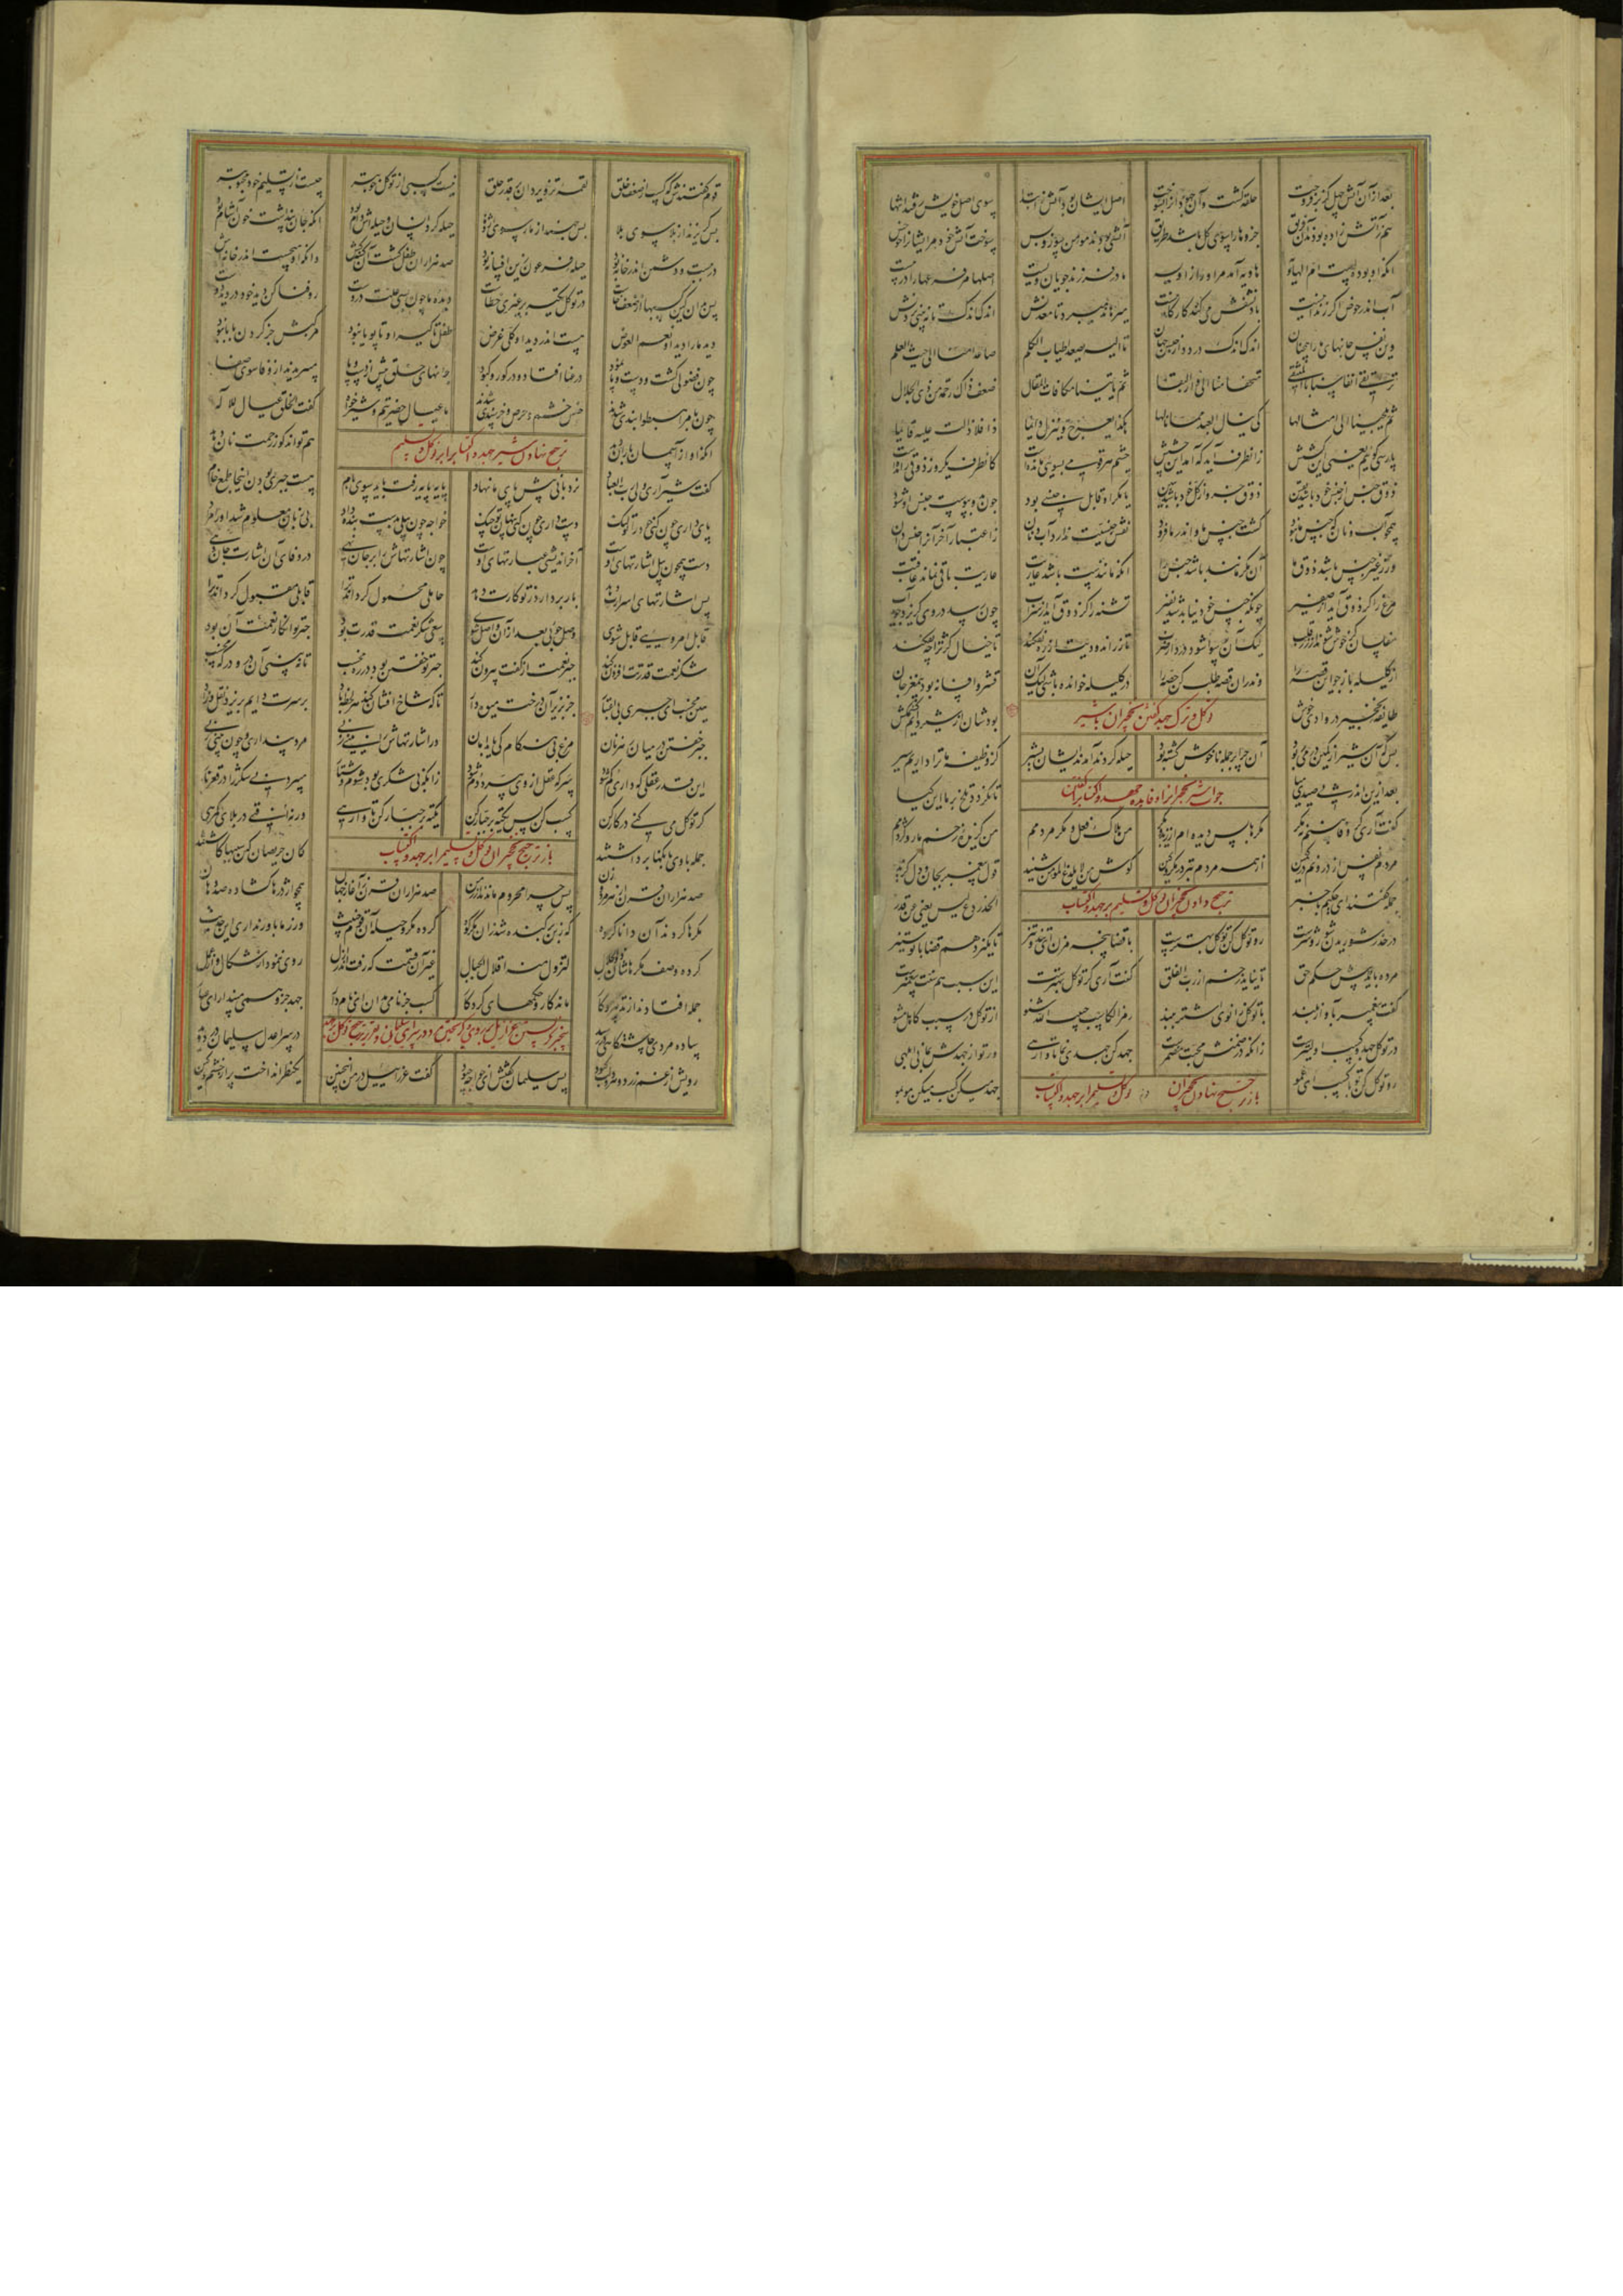 بعد از آن آتش چهل گز برفروخت حلقه گشت و آن جهودان را بسوخت اصل ایشان بود آتش ز ابتدا سوی اصل خویش رفتند انتها
هم ز آتش زاده بودند آن فریق جزوها را سوی کل باشد طریق آتشی بودند مومن سوز و بس سوخت آتش خود مر ایشانرا چو خس
آنکه او بودست ام الهاویه هاویه آمد مر او را زاویه مادر فرزند جویان ویست اصلها مر فرعها را در پیست
آب اندر حوض اگر زندانیست باد نشفش می کند کارکانیست میرهاند میبرد تا معدنش اندک اندک تا نه بینی بردنش
وین نفس جانهای ما را همچنان اندک اندک دزدد از حبس جهان تا الیه یصعد اطیاب الکلم صاعدا منا الی حیث العلم
ترتقی انفاسنا بالمنتقی متحفا منا الی دار البقا ثم یاتینا مکافات المقال ضعف ذاک رحمة من ذی الجلال
ثم یلجینا الی امثالها کی ینال العبد مما نالها هکذا یعرج و ینزل دایما ذا فلا زلت علیه قایما
پارسی گویم یعنی این کشش زانطرف آید که آمد این چشش چشم هر قومی بسوی مانده است کانطرف یکروز ذوقی رانده است
ذوق جنس از جنس خود باشد یقین ذوق جزو از کل خود باشد ببین یا مگر او قابل جنسی بود چون بدو پیوست جنس او شود
همچو آب و نان که جنس ما نبود گشت جنس ما و اندر ما فزود نقش جنسیت ندارد آب و نان ز اعتبار آخر آنرا جنس دان
ور ز غیر جنس باشد ذوق ما آن مگر مانند باشد جنس را آنکه مانندست باشد عاریت عاریت باقی نماند عاقبت
مرغ را گر ذوق آید از صفیر چونکه جنس خود نیابد شد نفیر تشنه را گر ذوق آید از سراب چون رسد در وی گریزد جوید آب
مفلسان گر خوش شوند از زر قلب لیک آن رسوا شود در دار ضرب تا زر اندودیت از ره نفکند تا خیال کژ ترا چه نفکند
از کلیله باز جو آن قصه را و ندران قصه طلب کن حصه را در کلیله خوانده باشی لیک آن قشر و افسانه بود نه مغز جان
طایفه نخجیر در وادی خوش بودشان از شیر دایم کشمکش
توکل و ترک جهد گفتن نخجیران با شیر
بس که آن شیر از کمین در می ربود آن چرا بر جمله ناخوش گشته بود حیله کردند آمدند ایشان بشیر کز وظیفه ما ترا داریم سیر
بعد ازین اندر پی صیدی میا تا نگردد تلخ بر ما این گیا
جواب شیر نخجیرانرا و فایده جهد و اکتساب گفتن
گفت آری گر وفا بینم نه مکر مکرها بس دیده ام از زید و بکر من هلاک فعل و مکر مردمم من گزیده زخم مار و کژدمم
مردم نفس از درونم در کمین از همه مردم بتر در مکر و کین گوش من لا یلدغ المومن شنید قول پیغمبر بجان و دل گزید
جمله گفتند ای حکیم باخبر الحذر دع لیس یغنی عن قدر
ترجیح دادن نخجیران توکل و تسلیم بر جهد و اکتساب
در حذر شوریدن شور و شرست رو توکل کن توکل بهترست با قضا پنجه مزن ای تند و تیز تا نگیرد هم قضا با تو ستیز
مرده باید بود پیش حکم حق تا نیاید زخم از رب الفلق گفت آری گر توکل بهترست این سبب هم سنت پیغمبرست
گفت پیغمبر بآواز بلند با توکل زانوی اشتر ببند رمز الکاسب حبیب الله شنو از توکل در سبب کاهل مشو
در توکل جهد و کسب اولیترست زانکه در ضمنش محبت مضمرست جهد کن جدی نما تا وارهی ور تو از جهدش بمانی ابلهی
رو توکل کن تو با کسب ای عمو جهد میکن کسب میکن مو بمو
باز ترجیح نهادن نخجیران توکل و تسلیم را بر جهد و اکتساب
قوم گفتندش که کسب از ضعف خلق لقمه تزویر دان بر قدر حلق نیست کسبی از توکل خوبتر چیست از تسلیم خود محبوبتر
بس گریزند از بلا سوی بلا بس جهند از مار سوی اژدها حیله کرد انسان و حیله اش دام بود آنکه جان پنداشت خون آشام بود
در ببست و دشمن اندر خانه بود حیله فرعون زین افسانه بود صد هزاران طفل کشت آن کینه کش وانکه او میجست اندر خانه اش
پس بدان کین کسبها از ضعف خاست در توکل تکیه بر غیری خطاست دیده ما چون بسی علت دروست رو فنا کن دید خود در دید دوست
دید ما را دید او نعم العوض هست اندر دید او کلی غرض طفل تا گیرا و تا پویا نبود مرکبش جز گردن بابا نبود
چون فضولی گشت و دست و پا نمود در عنا افتاد و در کور و کبود جانهای خلق پیش از دست و پا میپریدند از وفا سوی صفا
چون بامر اهبطوا بندی شدند حبس خشم و حرص و خرسندی شدند ما عیال حضرتیم و شیرخواه گفت الخلق عیال للاله
آنکه او از آسمان باران دهد هم تواند کو ز رحمت نان دهد
ترجیح نهادن شیر جهد و اکتساب را بر توکل و تسلیم
گفت شیر آری ولی رب العباد نردبانی پیش پای ما نهاد پایه پایه رفت باید سوی بام هست جبری بودن اینجا طمع خام
پای داری چون کنی خود را تو لنگ دست داری چون کنی پنهان تو چنگ خواجه چون بیلی بدست بنده داد بی زبان معلوم شد او را مراد
دست همچون بیل اشارتهای اوست آخر اندیشی عبارتهای اوست چون اشارتهاش را بر جان نهی در وفای آن اشارت جان دهی
پس اشارتهای اسرارت دهد بار بردارد ز تو کارت دهد حاملی محمول گرداند ترا قابلی مقبول گرداند ترا
قابل امر ویی قابل شوی وصل جویی بعد از آن واصل شوی سعی شکر نعمتت قدرت بود جبر تو انکار نعمت آن بود
شکر نعمت قدرتت افزون کند جبر نعمت از کفت بیرون کند جبر تو خفتن بود در ره مخسب تا نه بینی آن در و درگه مخسب
هین مخسب ای جبری بی اعتبار جز بزیر آن درخت میوه دار تا که شاخ افشان کند هر لحظه باد بر سرت دایم بریزد نقل و زاد
جبر خفتن در میان رهزنان مرغ بی هنگام کی یابد امان ور اشارتهاش را بینی زنی مرد پنداری و چون بینی زنی
این قدر عقلی که داری گم شود سر که عقل از وی بپرد دم شود زانکه بی شکری بود شوم و شنار میبرد بی شکر را در قعر نار
گر توکل می کنی در کار کن کسب کن پس تکیه بر جبار کن تکیه بر جبار کن تا وارهی ورنه افتی در بلای گمرهی
جمله با وی بانگها برداشتند کان حریصان کین سببها کاشتند
باز ترجیح نخجیران توکل و تسلیم را بر جهد و اکتساب
صد هزاران قرن از مرد و زن پس چرا محروم ماندند از زمن صد هزاران قرن ز آغاز جهان همچو اژدرها گشاده صد دهان
مکرها کردند آن دانا گروه که ز بن برکنده شد زان مکر کوه کرده مکر و حیله آن قوم خبیث ور ز ما باور نداری این حدیث
کرده وصف مکرهاشان ذوالجلال لتزول منه اقلال الجبال غیر آن قسمت که رفت اندر ازل روی ننمود از شکال و از عمل
جمله افتادند از تدبیر و کار ماند کار و حکمهای کردگار کسب جز نامی مدان ای نامدار جهد جز وهمی مپندار ای عیار
ساده مردی چاشتگاهی در رسید در سرا عدل سلیمان در دوید
رویش از غم زرد و هر دو لب کبود پس سلیمان گفتش ای خواجه چه بود گفت عزراییل در من اینچنین یکنظر انداخت پر از خشم و کین